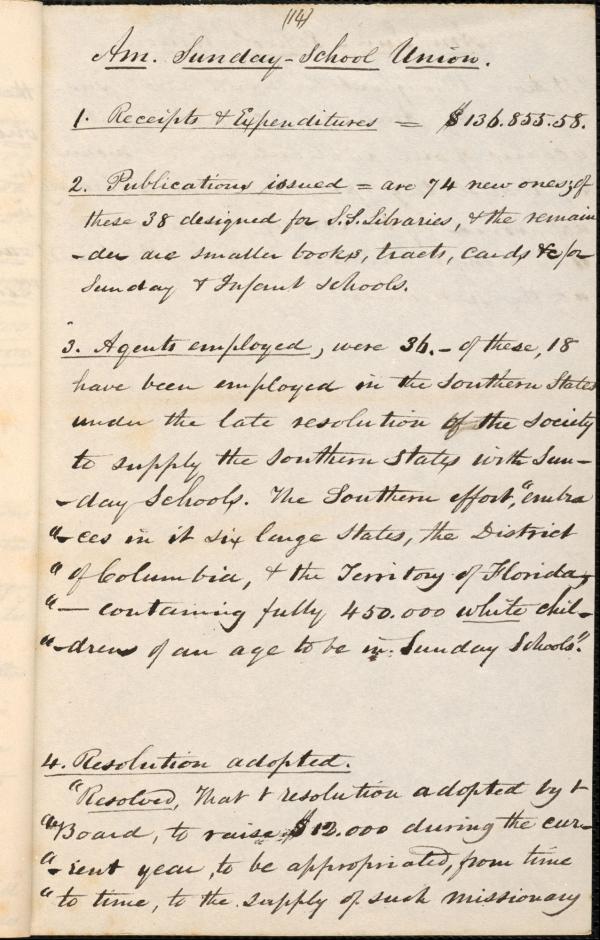 (14)
Am. Sunday-School Union.
1. Receipts & Expenditures = $136.855.58.
2. Publications issued = are 74 new ones; of
these 38 designed for S.S. Libraries, & the remain
-der are smaller books, tracts, cards &c for
Sunday & Infant schools.
3. Agents employed, were 36. – of these, 18
have been employed in the Southern States
under the late resolution of the Society
to supply the Southern States with Sun-
-day Schools. The Southern effort, "embra
"-ces in it six large States, the District
" of Columbia, & the Territory of Florida,
"– containing fully 450.000 white chil-
"-dren of an age to be in Sunday Schools".
4. Resolution adopted.
"Resolved, That t resolution adopted by t
"Board, to raise $12.000 during the cur-
"-rent year, to be appropriated, from time
" to time, to the supply of such missionary